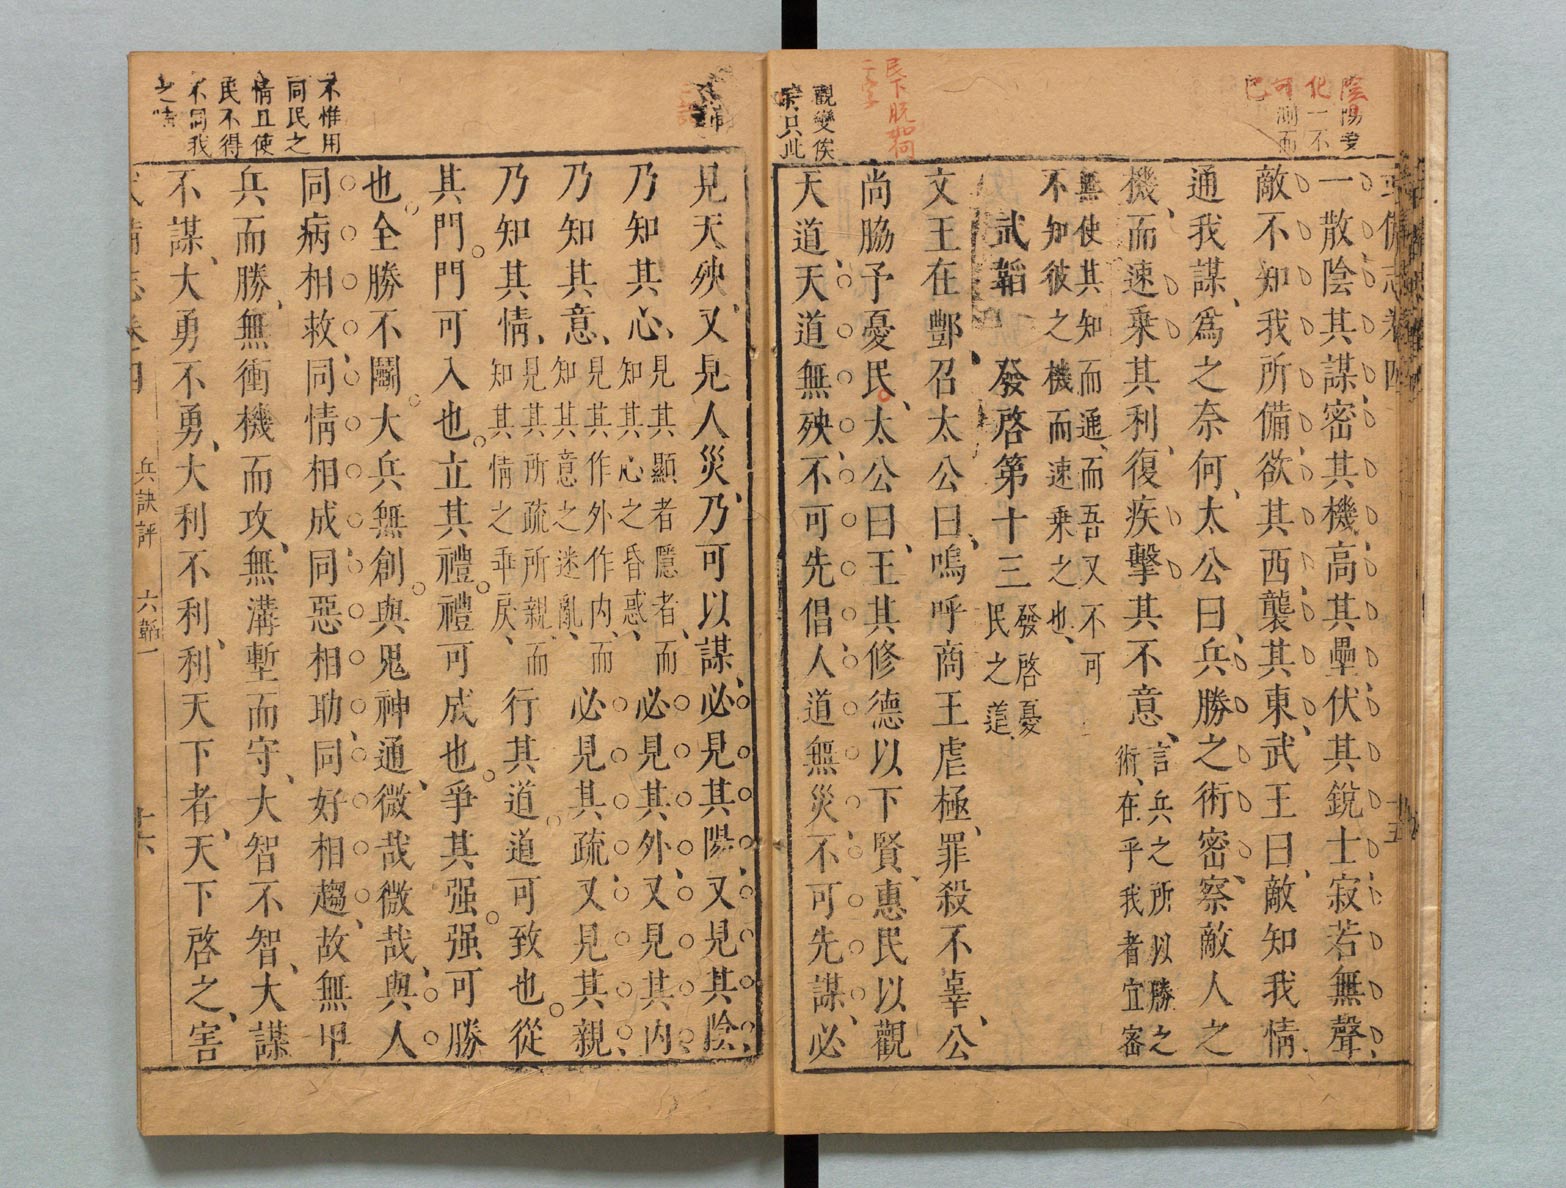 武備志卷四
一散陰其謀密其機高其壘伏其銳士寂若無聲
敵不知我所備欲其西襲其東武王曰敵知我情
通我謀爲之奈何太公曰兵勝之術密察敵人之
機而速乘其利復疾擊其不意言兵之所以勝之
術在乎我者宜審
無使其知而通而吾又不可
不知彼之機而速乘之也
武韜 發啓第十三 發啓憂
民之道
文王在酆召太公曰嗚呼商王虐極罪殺不辜公
尚脇予憂民太公曰王其修德以下賢惠民以觀
天道天道無殃不可先倡人道無災不可先謀必
見天殃又見人災乃可以謀必見其陽又見其陰
乃知其心見其顯者隱者而
知其心之昏惑必見其外又見其内
乃知其意見其作外作内而
知其意之迷亂必見其疏又見其親
乃知其情見其所疏所親而
知其情之乖戾行其道道可致也從
其門門可入也立其禮禮可成也爭其强强可勝
也全勝不鬭大兵無創與鬼神通微哉微哉與人
同病相救同情相成同惡相助同好相趨故無甲
兵而勝無衝機而攻無溝塹而守大智不智大謀
不謀大勇不勇大利不利利天下者天下啓之害
兵訣評 六韜一
陰陽變
化一不
可測而
已
民下脫如何
二字
觀變俟
只此
不惟用
同民之
情且使
民不得
不同我
之情